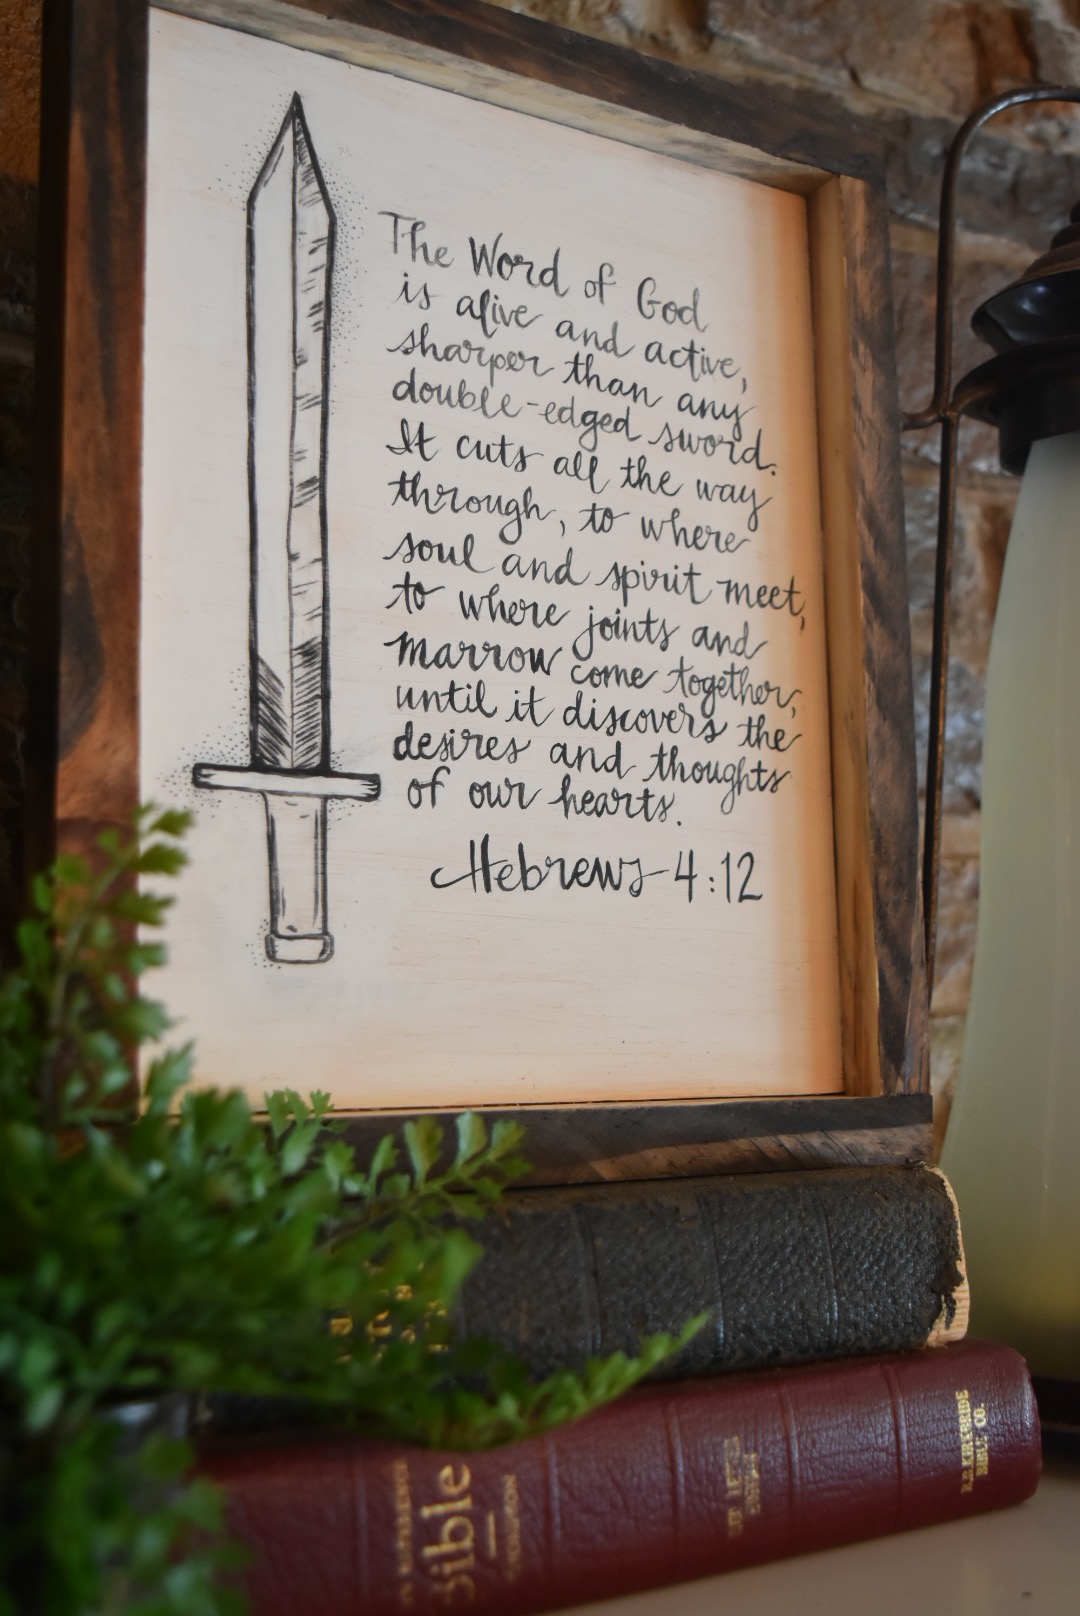 The Word of God
is alive and active,
sharper than any
double-edged sword.
It cuts all the way
through, to where
soul and spirit meet,
to where joints and
marrow come together,
until it discovers the
desires and thoughts
of our hearts.
Hebrews 4:12
Bible
B.B. KIRKBRIDE
BIBLE CO.